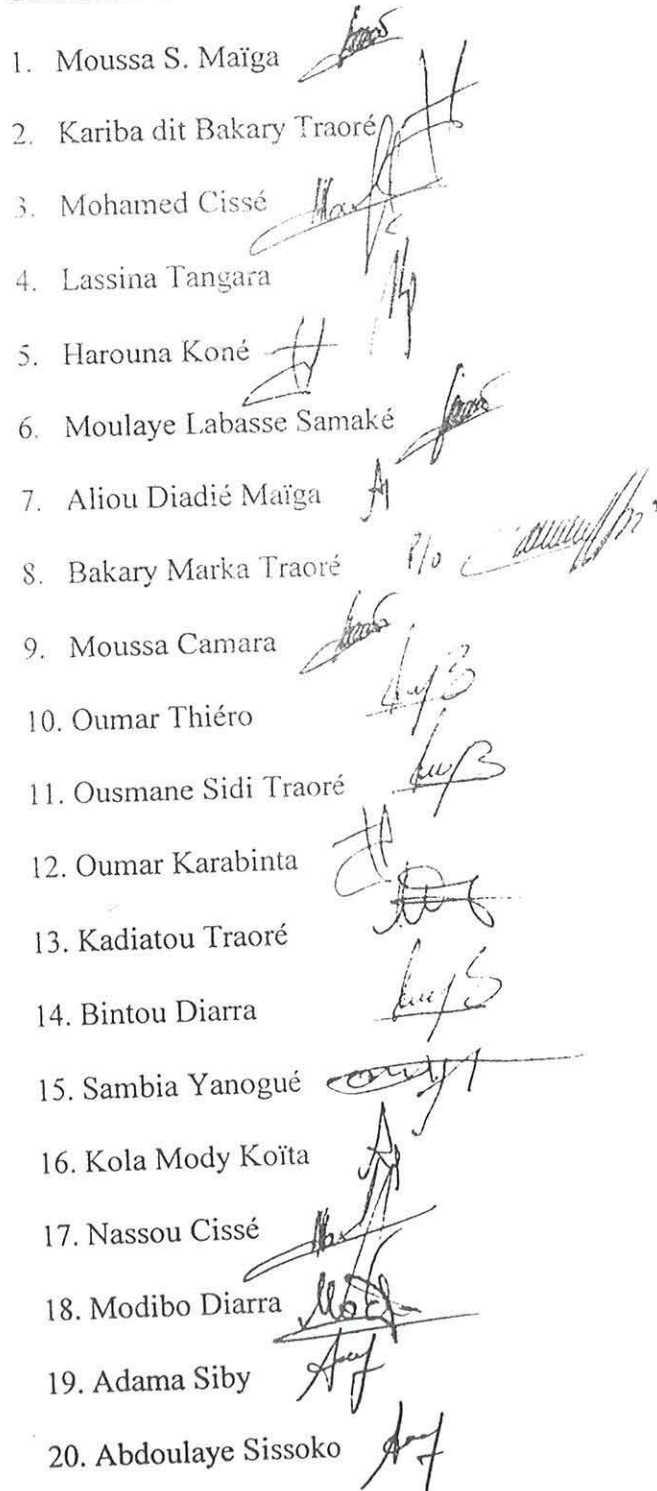 1. Moussa S. Maïga
2. Kariba dit Bakary Traoré
3. Mohamed Cissé
4. Lassina Tangara
5. Harouna Koné
6. Moulaye Labasse Samaké
7. Aliou Diadié Maïga
8. Bakary Marka Traoré P/o
9. Moussa Camara
10. Oumar Thiéro
11. Ousmane Sidi Traoré
12. Oumar Karabinta
13. Kadiatou Traoré
14. Bintou Diarra
15. Sambia Yanogué
16. Kola Mody Koïta
17. Nassou Cissé
18. Modibo Diarra
19. Adama Siby
20. Abdoulaye Sissoko